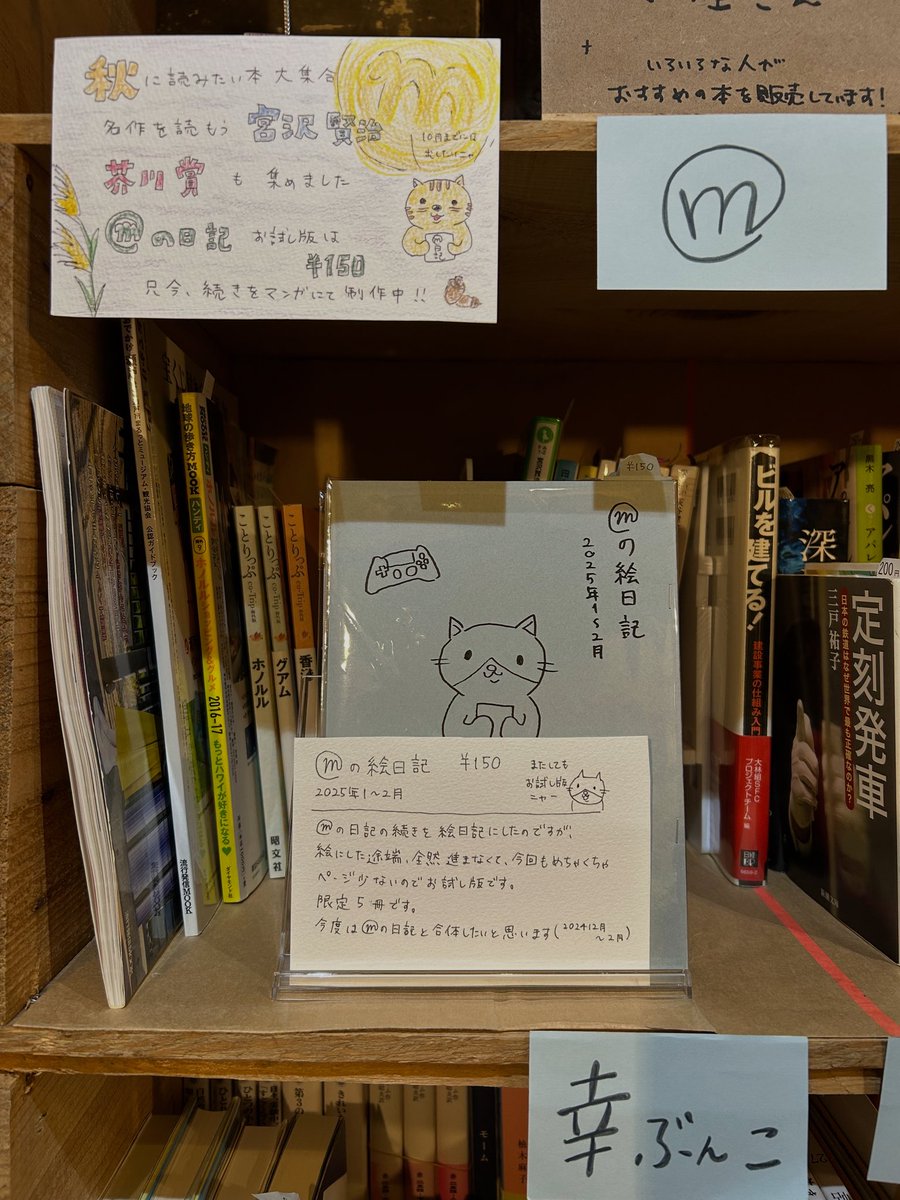 秋に読みたい本大集合
名作を読もう 宮沢賢治
10月までには
出したいニャ
芥川賞も集めました
ⓜの日記 お試し版は
¥150
只今、続きをマンガにて制作中!!
m
m日記
いろいろな人が
おすすめの本を販売しています!
ⓜ
公認ガイドブック
流行発信MOOK
地球の歩き方MOOK
ハンディ
2016-17
もっとハワイが好きになる♥
ダイヤモンド社
ことりっぷ co-Trip
ホノルル
昭文社
ことりっぷ co-Trip
グアム
ことりっぷ co-Trip
¥150
ⓜの絵日記
2025年1~2月
ⓜの絵日記 ¥150
2025年1~2月
またしても
お試し版
ニャー
ⓜの日記の続きを絵日記にしたのですが、
絵にした途端、全然進まなくて、今回もめちゃくちゃ
ページ少ないのでお試し版です。
限定5冊です。
今度はⓜの日記と合体したいと思います(2024 12月
~2月)
ビルを建てる!
建設事業の仕組み入門
大林組SFC
プロジェクトチーム 編
深
黒木 亮
200円
定刻発車
日本の鉄道はなぜ世界で最も正確なのか?
三戸祐子
モーム
柚木麻子
幸ぶんこ